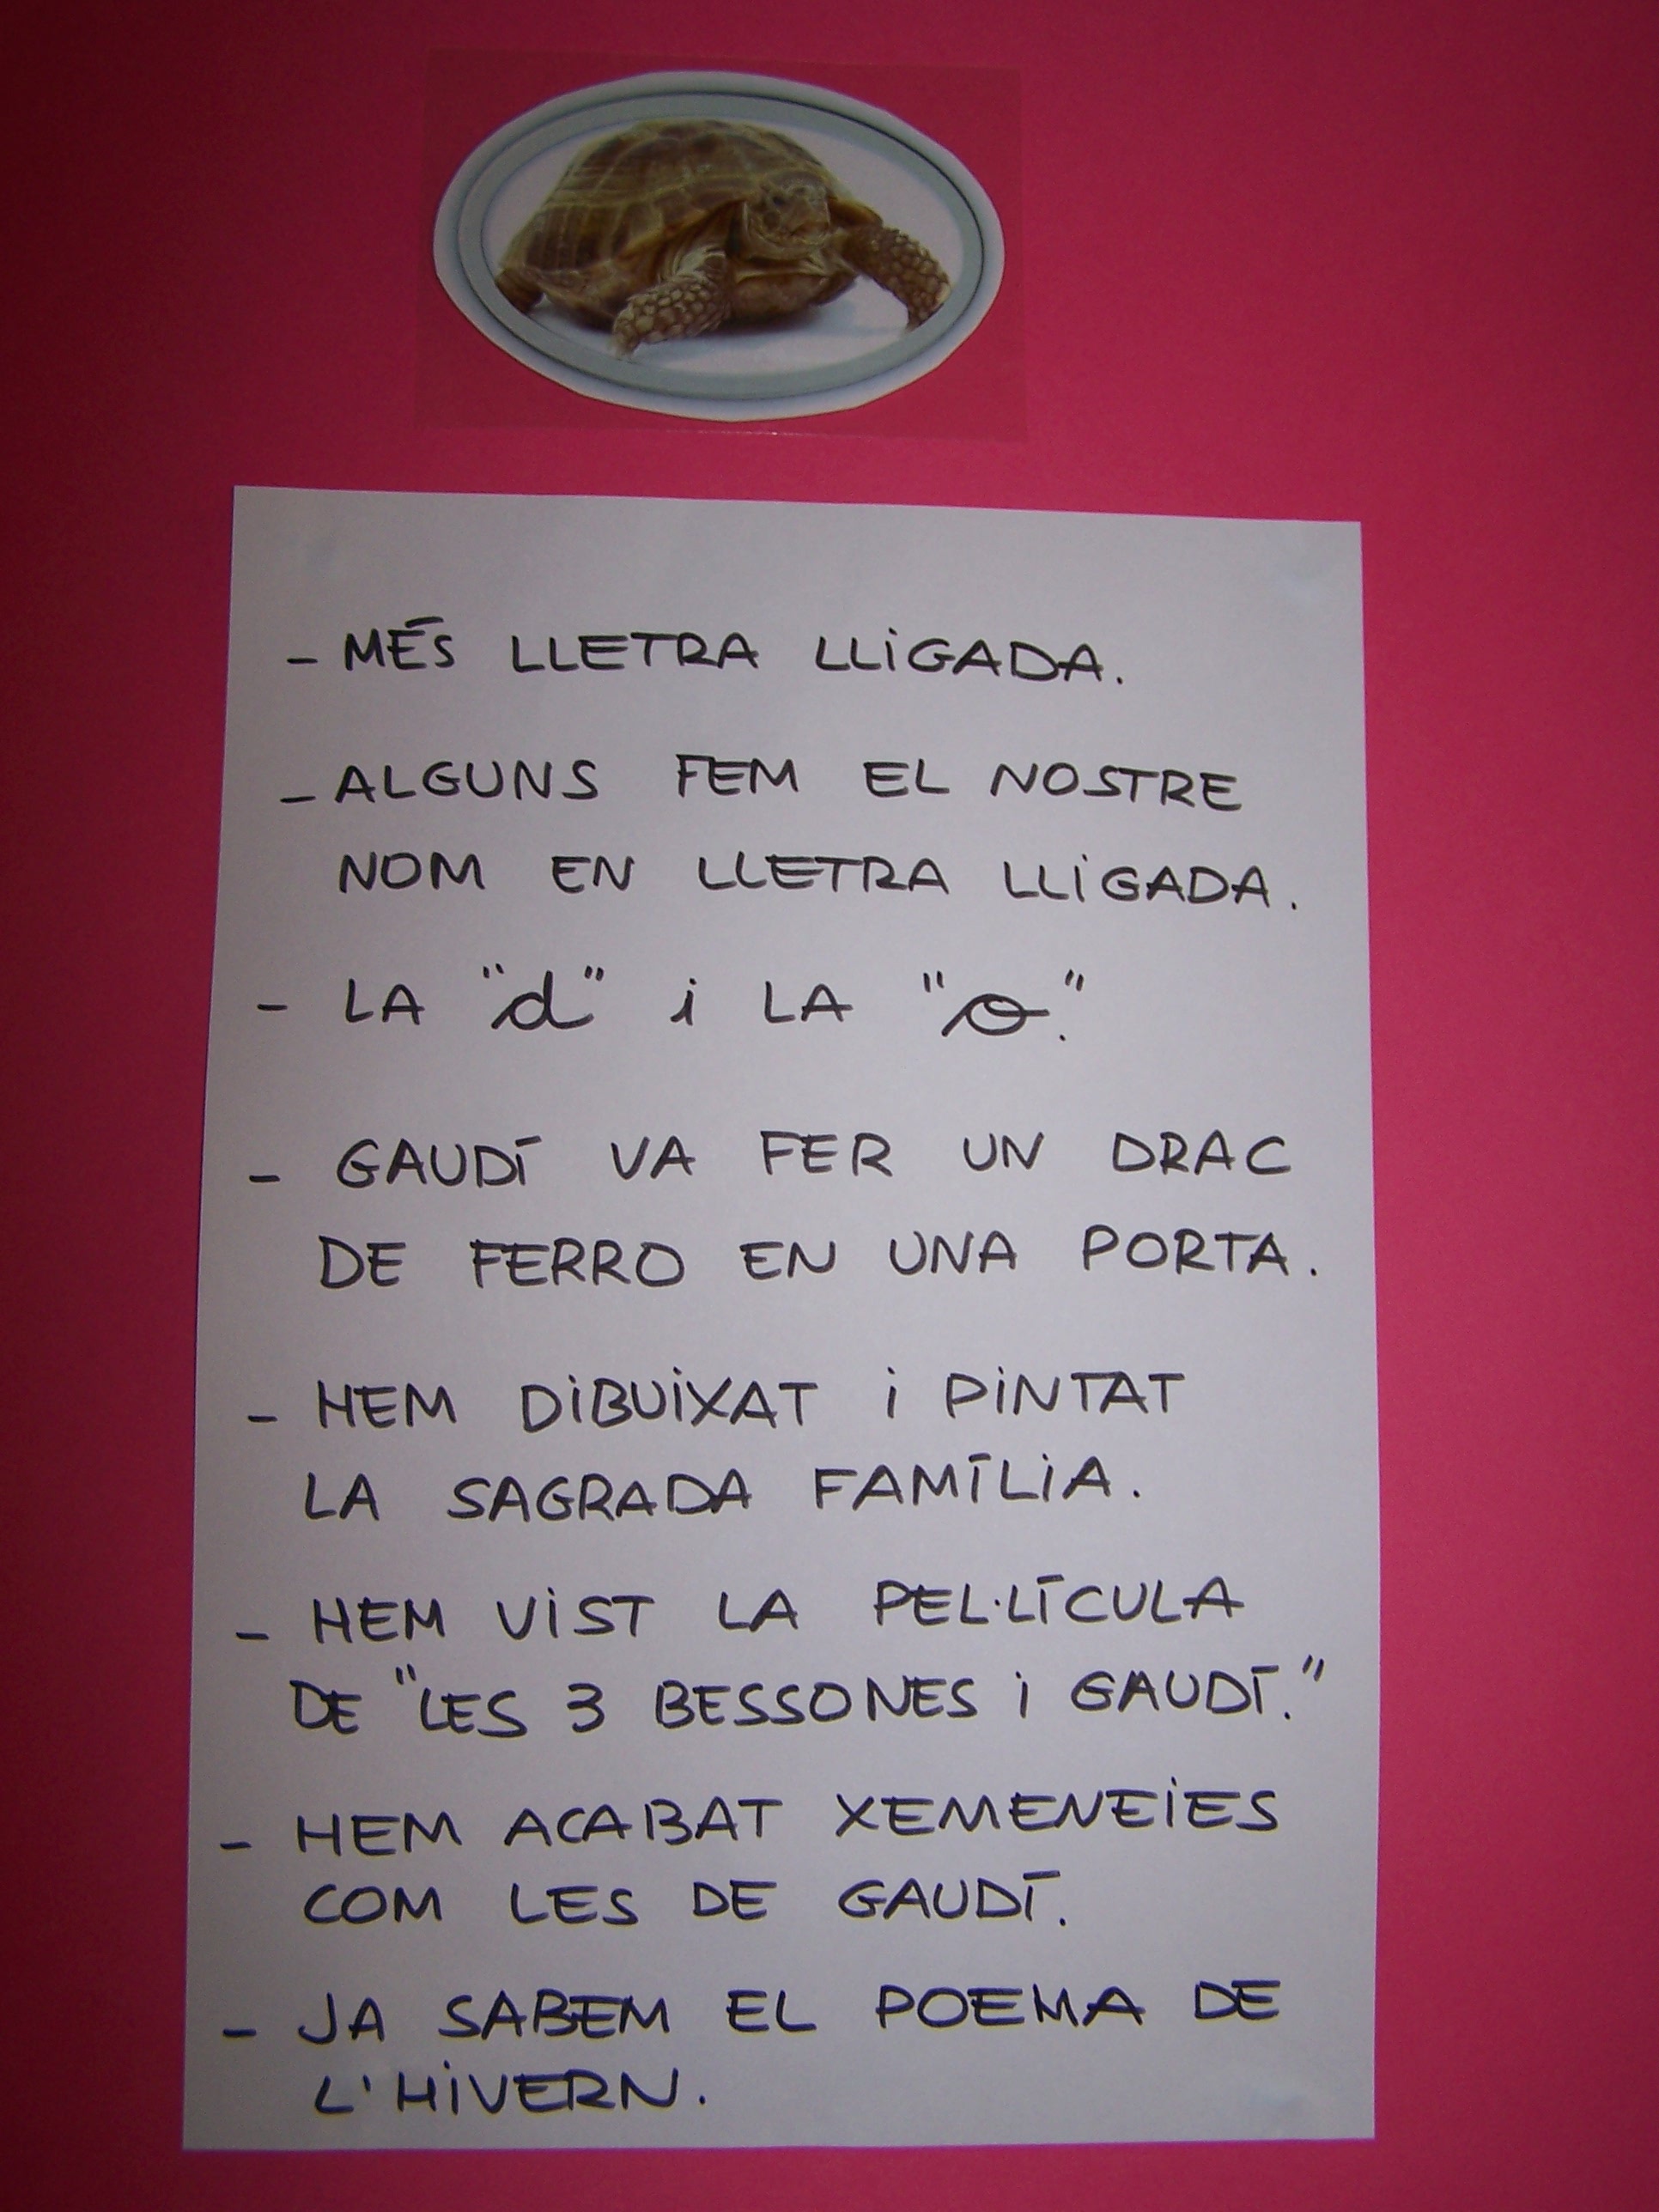 - MÉS LLETRA LLiGADA.
- ALGUNS FEM EL NOSTRE
NOM EN LLETRA LLiGADA.
- LA "d" i LA "o."
- GAUDÍ VA FER UN DRAC
DE FERRO EN UNA PORTA.
- HEM DiBUiXAT i PiNTAT
LA SAGRADA FAMÍLiA.
- HEM ViST LA PEL·LÍCULA
DE "LES 3 BESSONES i GAUDÍ."
- HEM ACABAT XEMENEiES
COM LES DE GAUDÍ.
- JA SABEM EL POEMA DE
L'HiVERN.